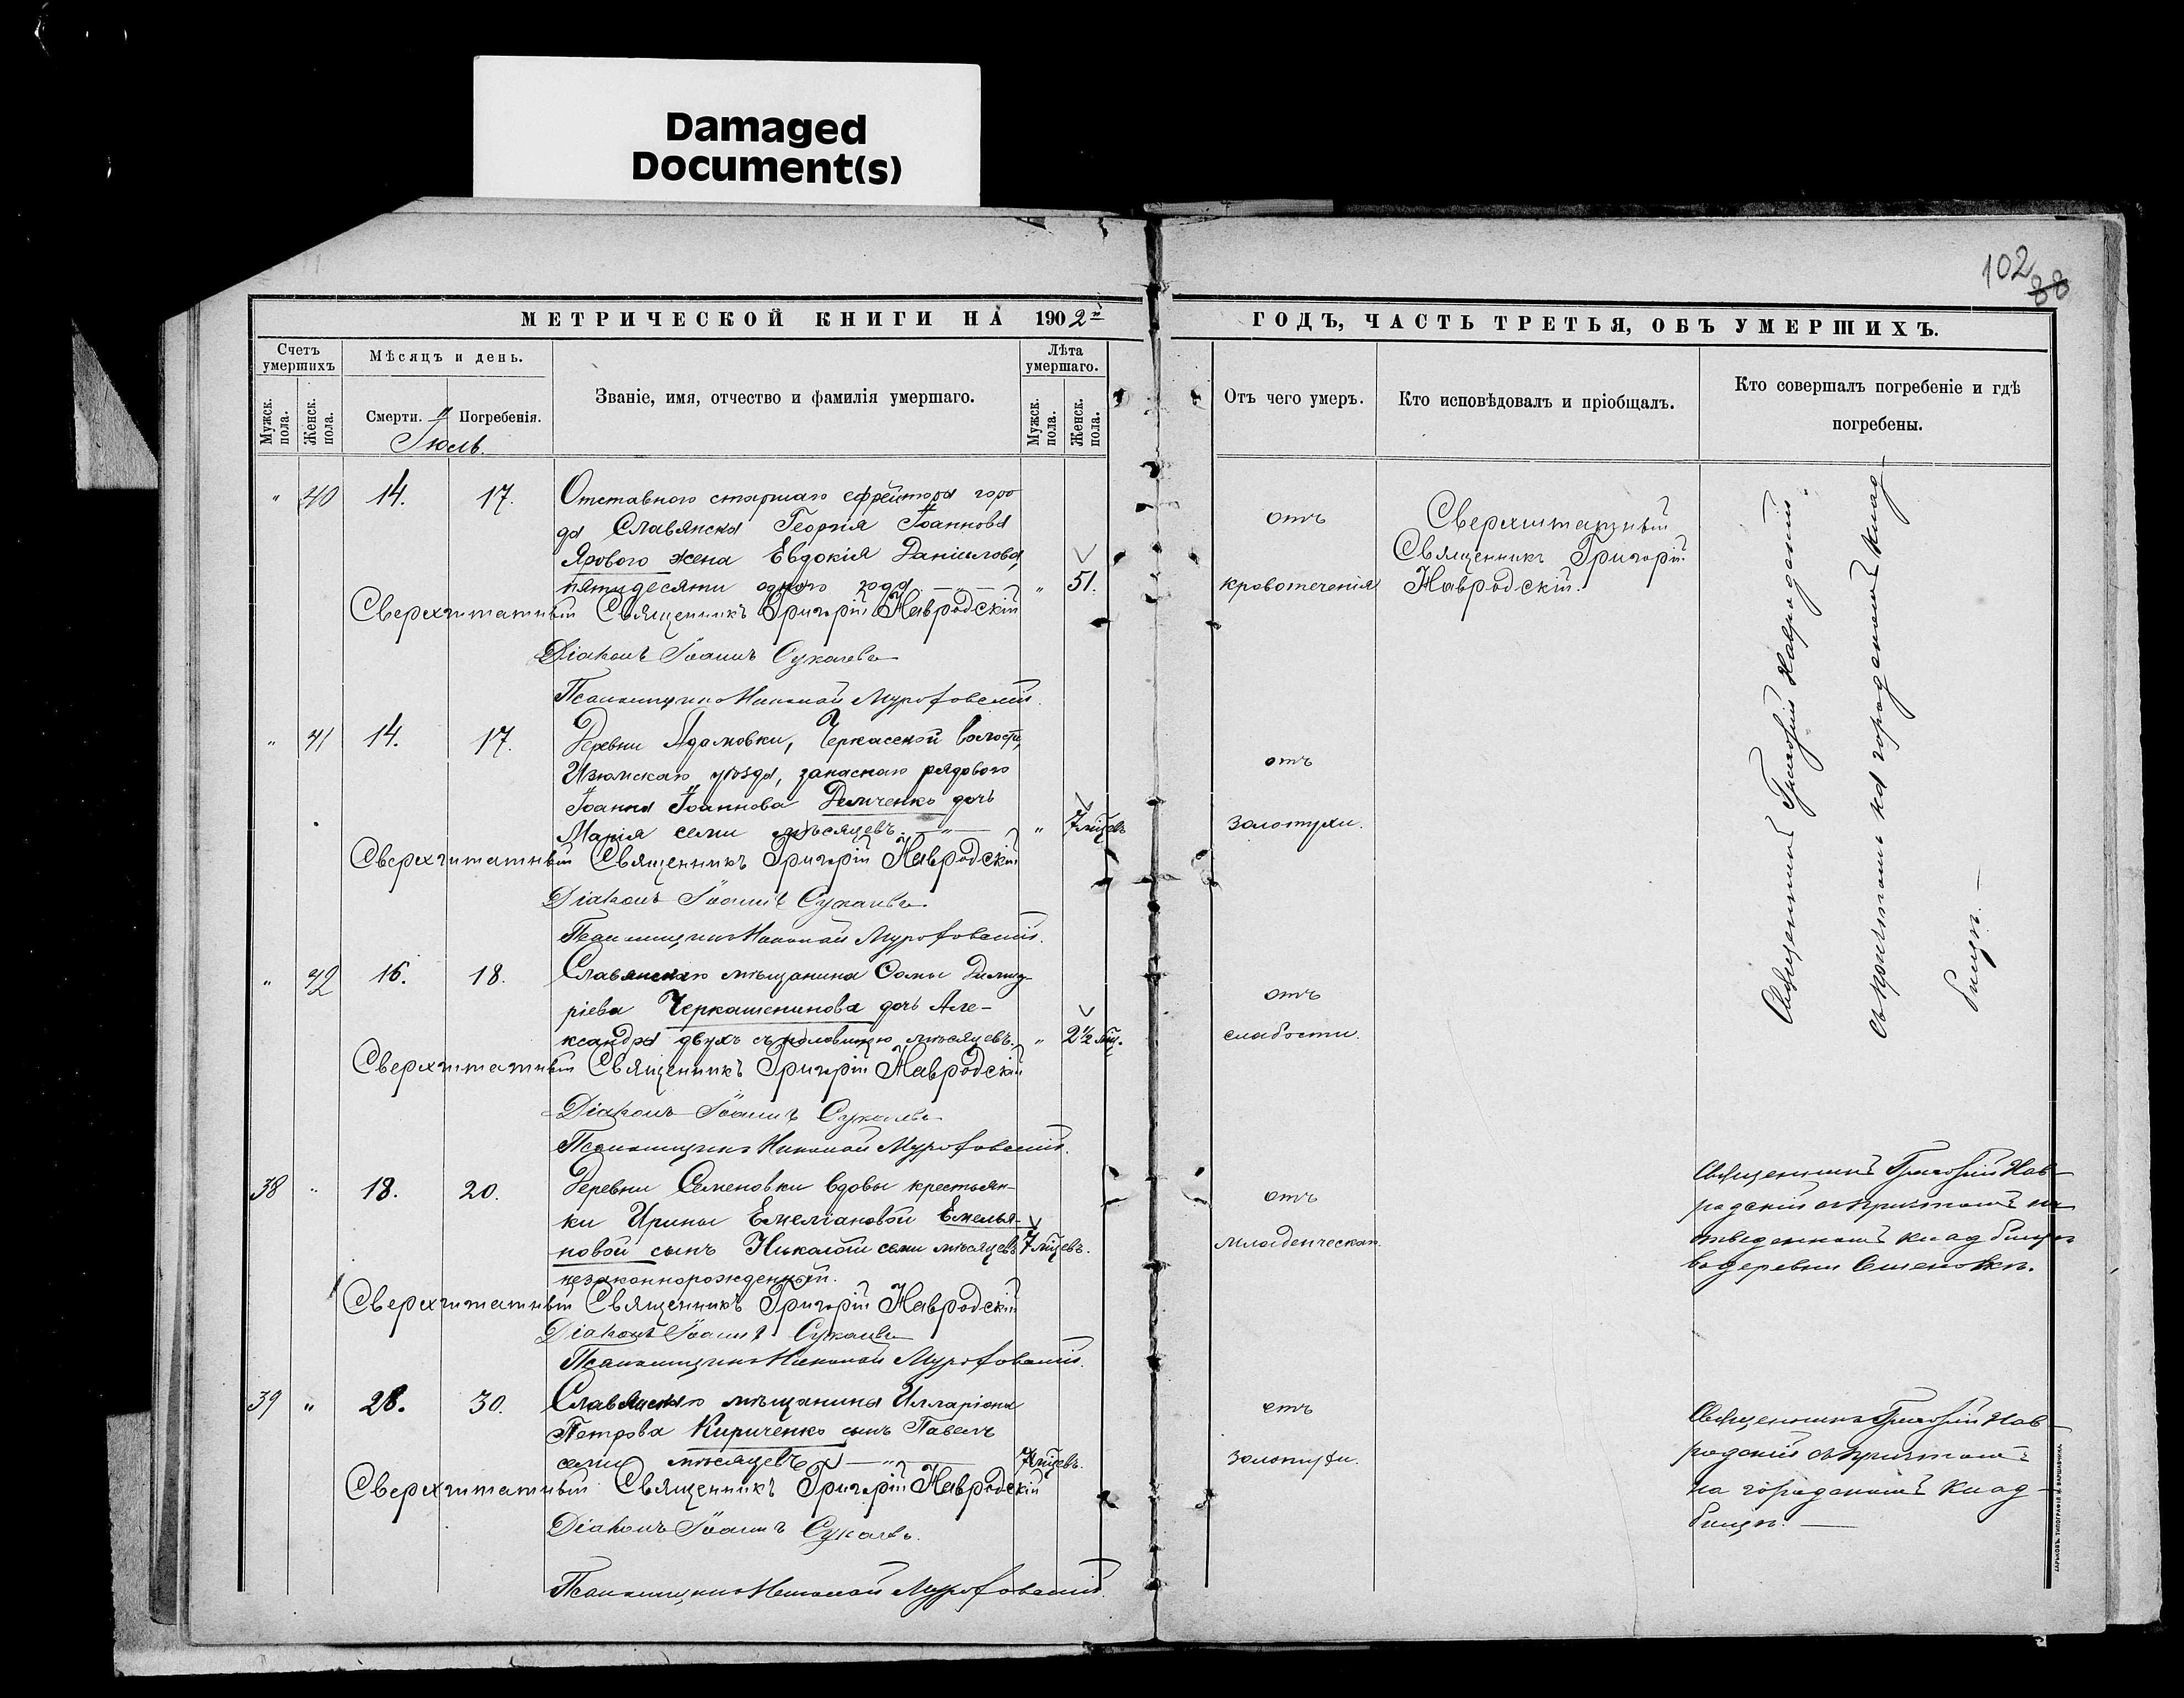 Damaged
Document(s)
102
88
МЕТРИЧЕСКОЙ КНИГИ НА 1902й
ГОДЪ, ЧАСТЬ ТРЕТЬЯ, ОБЪ УМЕРШИХЪ.
Счетъ умершихъ
Мѣсяцъ и день.
Званіе, имя, отчество и фамилія умершаго.
Лѣта умершаго.
Мужск. пола.
Женск. пола.
Смерти.
Погребенія.
Мужск. пола.
Женск. пола.
Отъ чего умеръ.
Кто исповѣдовалъ и пріобщалъ.
Кто совершалъ погребеніе и гдѣ
погребены.
Іюль.
" 40 14. 17. Отставного старшаго ефрейтора горо
да Славянска Георгія Іоаннова
Ярового жена Евдокія Даніилова,
пятидесяти одного года — " — " 51.
отъ
кровотеченія
Сверхштатный
Священникъ Григорій
Навродскій.
Сверхштатный Священникъ Григорій Навродскій
Діаконъ Іоаннъ Сукачевъ
Псаломщикъ Николай
" 41 14. 17. Деревни Адамовки, Черкасской волости,
Изюмскаго уѣзда, запаснаго рядового
Іоанна Іоаннова Демченко дочь
Марія семи мѣсяцевъ. — " — " 7 мѣцевъ
отъ
золотухи.
Сверхштатный Священникъ Григорій Навродскій
Діаконъ Іоаннъ Сукачевъ
Псаломщикъ Николай
" 42 16. 18. Славянскаго мѣщанина Ѳомы Димит
ріева Черкашенинова дочь Але-
ксандра двухъ съ половиною мѣсяцевъ. " 2½ мѣц.
отъ
слабости.
Сверхштатный Священникъ Григорій Навродскій
Діаконъ Іоаннъ Сукачевъ
Псаломщикъ Николай
Священникъ Григорій Навродскій
съ причтомъ на городскомъ клад-
бищѣ. —
38 " 18. 20. Деревни Семеновки вдовы крестьян-
ки Ирины Емеліановой Емелья-
новой сынъ Николай семи мѣсяцевъ 7 мѣцевъ.
незаконнорожденный.
отъ
младенческая.
Священникъ Григорій Нав-
родскій съ причтомъ на
отведенномъ кладбищѣ
въ деревни Семеновкѣ.
Сверхштатный Священникъ Григорій Навродскій
Діаконъ Іоаннъ Сукачевъ
Псаломщикъ Николай
39 " 28. 30. Славянскаго мѣщанина Илларіона
Петрова Кириченко сынъ Павелъ
семи мѣсяцевъ — " — 7 мѣцевъ.
отъ
золотухи.
Священникъ Григорій Нав-
родскій съ причтомъ
на городскомъ клад-
бищѣ. —
Сверхштатный Священникъ Григорій Навродскій
Діаконъ Іоаннъ Сукачевъ.
Псаломщикъ Николай